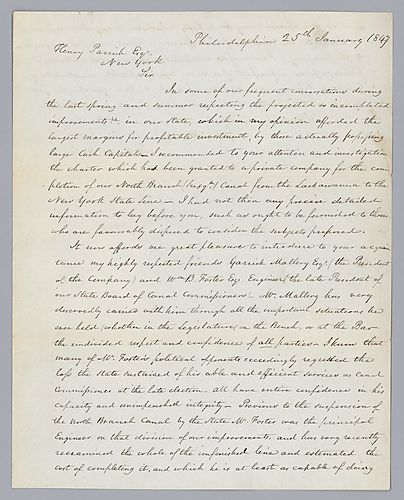 Philadelphia 25th January 1847
Henry Parish Esq.
New York
Sir
In some of our frequent conversations during
the last spring and summer respecting the projected or incompleted
improvements &c in our state, which in my opinion afforded the
largest margins for profitable investment by those actually possessing
large Cash Capitals – I recommended to your attention and investigation
the charter which had been granted to a private company for the com-
pletion of our North Branch (Susqa) Canal from the Lackawanna to the
New York State line – I had not then any precise detailed
information to lay before you, such as ought to be furnished to those
who are favorably disposed to consider the subjects proposed.
It now affords me great pleasure to introduce to your acquain
tance my highly respected friends Garrick Mallery Esqr (the President
of the Company) and Wm B. Foster Esq. Engineer (the late President of
our State Board of Canal Commissioners – Mr. Mallery has very
deservedly carried with him through all the important situations he
ever held, whether in the Legislature, on the Bench, or at the Bar
the undivided respect and confidence of all parties – I know that
many of Mr. Foster's political opponents exceedingly regretted the
loss the State sustained of his able and efficient services as Canal
Commissioner at the late election. all have entire confidence in his
capacity and unimpeached integrity – Previous to the suspension of
the North Branch Canal by the State Mr. Foster was the principal
Engineer on that division of our improvements, and has very recently
reexamined the whole of the unfinished line and estimated the
cost of completing it, and which he is at least as capable of doing